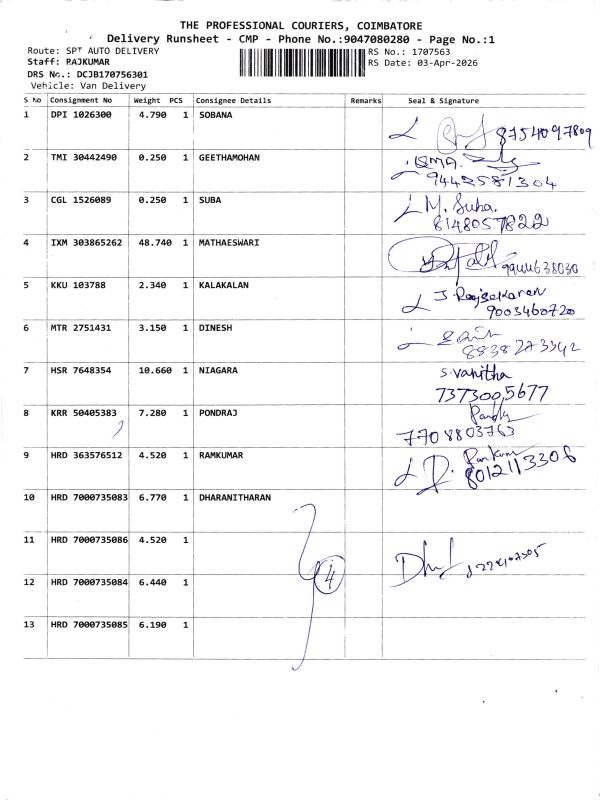 THE PROFESSIONAL COURIERS, COIMBATORE
Delivery Runsheet - CMP - Phone No.:9047080280 - Page No.:1
Route: SPT AUTO DELIVERY RS No.: 1707563
Staff: RAJKUMAR RS Date: 03-Apr-2026
DRS No.: DCJB170756301
Vehicle: Van Delivery
S No Consignment No Weight PCS Consignee Details Remarks Seal & Signature
1 DPI 1026300 4.790 1 SOBANA
8754097809
2 TMI 30442490 0.250 1 GEETHAMOHAN
9442581304
3 CGL 1526089 0.250 1 SUBA M. Suba.
8148057822
4 IXM 303865262 48.740 1 MATHAESWARI
9944638030
5 KKU 103788 2.340 1 KALAKALAN J. Rajsekaran
9003460720
6 MTR 2751431 3.150 1 DINESH
8838273342
7 HSR 7648354 10.660 1 NIAGARA S. Vanitha
7373005677
8 KRR 50405383 7.280 1 PONDRAJ
7708803763
9 HRD 363576512 4.520 1 RAMKUMAR
8012113306
10 HRD 7000735083 6.770 1 DHARANITHARAN
11 HRD 7000735086 4.520 1
12 HRD 7000735084 6.440 1 4
13 HRD 7000735085 6.190 1